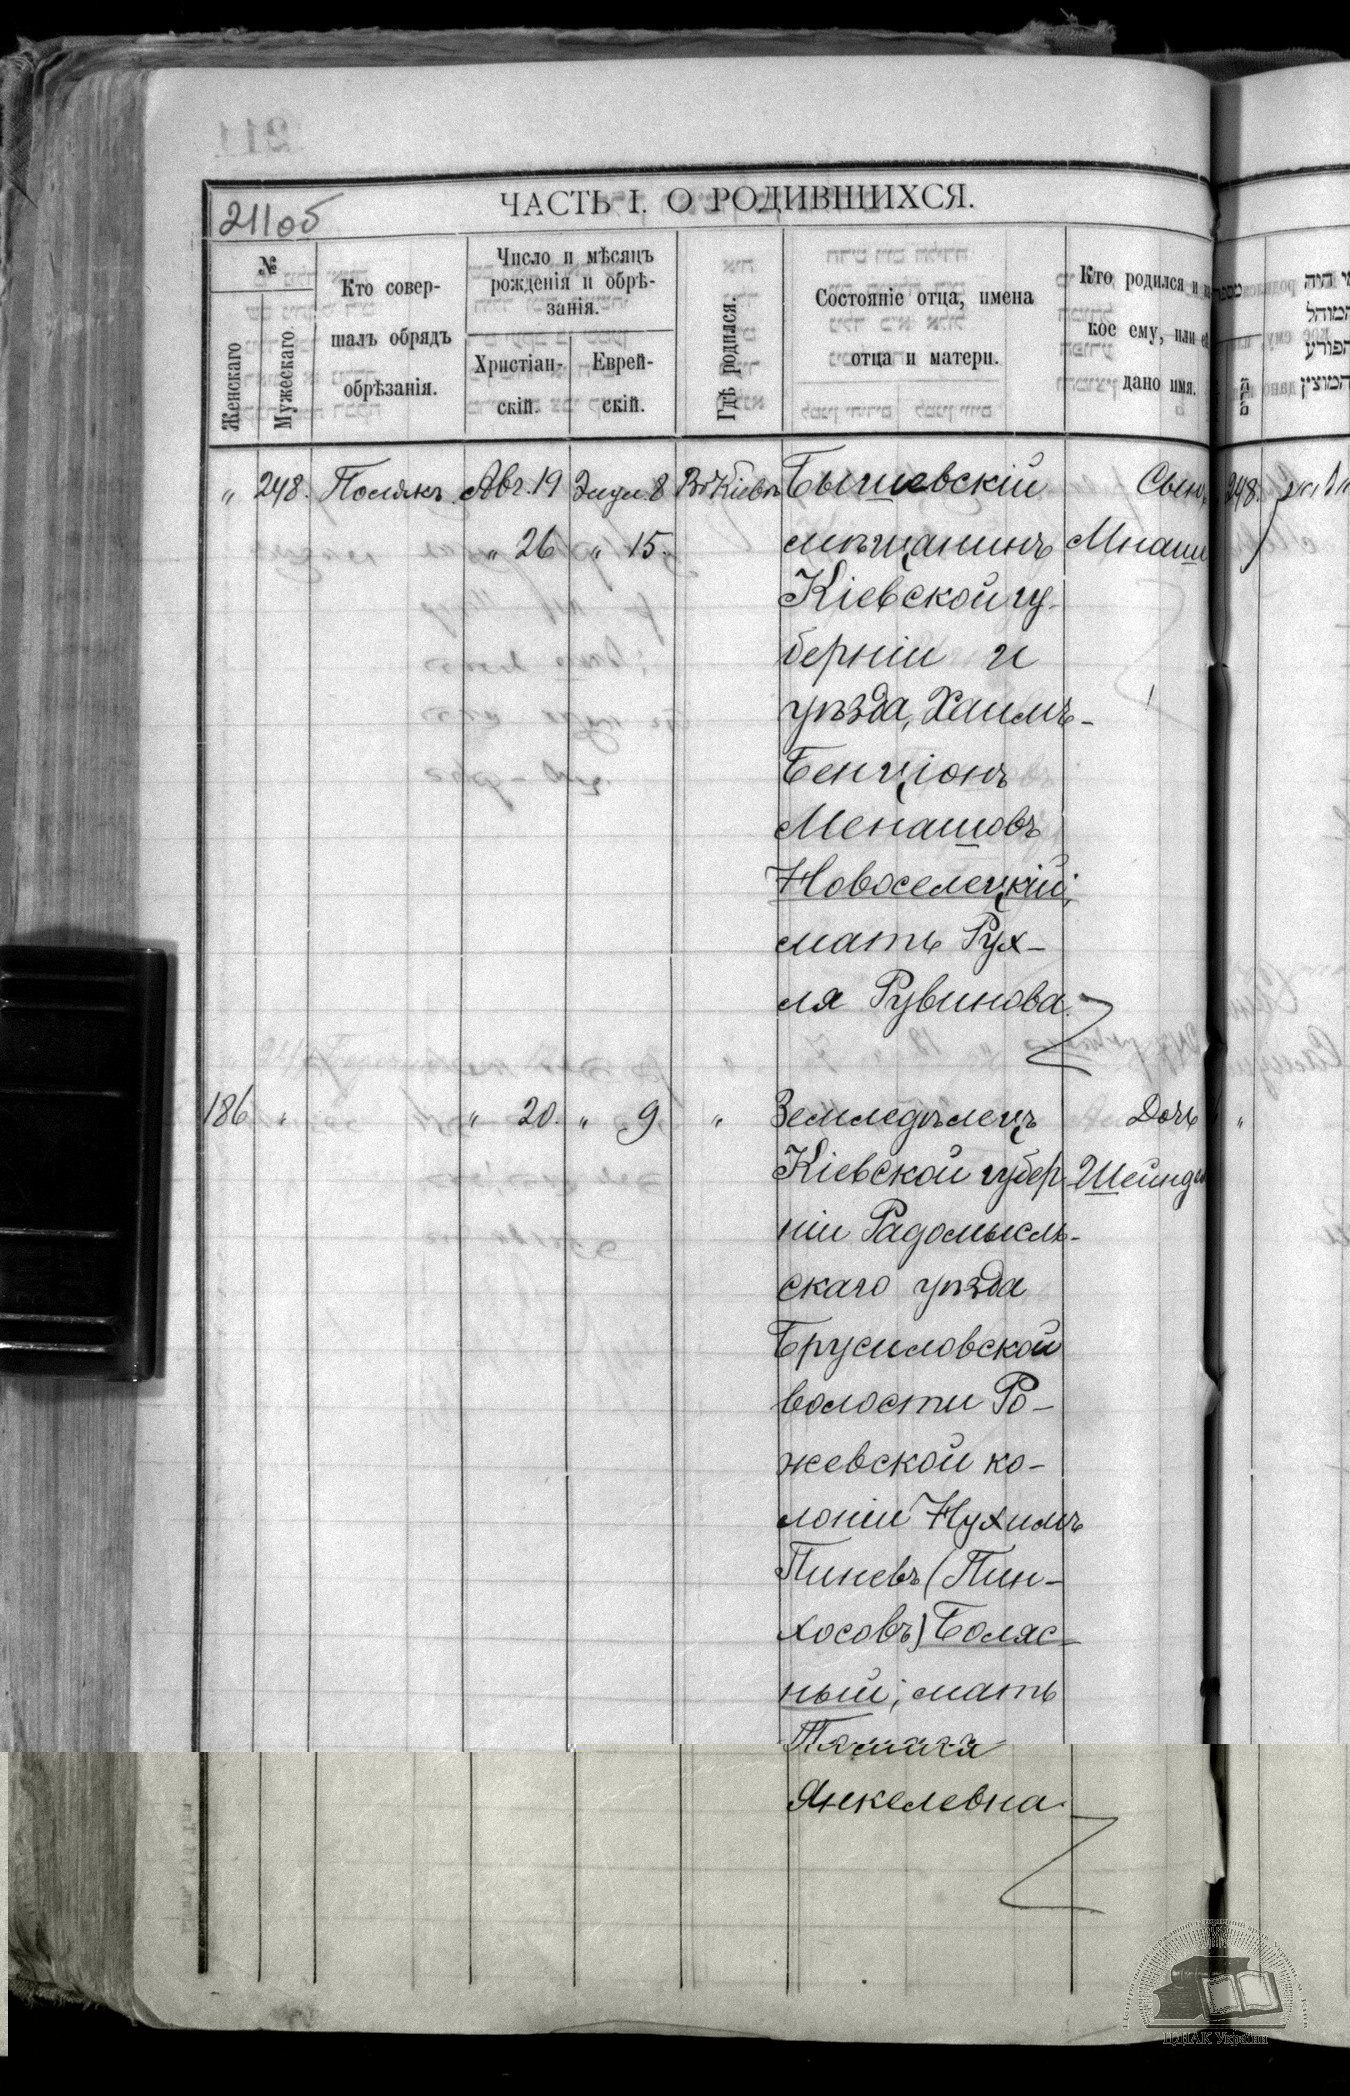 211об
ЧАСТЬ I. О РОДИВШИХСЯ.
№
Женскаго
Мужескаго
Кто совер-
шалъ обрядъ
обрѣзанія.
Число и мѣсяцъ
рожденія и обрѣ-
занія.
Христіан-
скій.
Еврей-
скій.
Гдѣ родился.
Состояніе отца, имена
отца и матери.
Кто родился и
кое ему, или
дано имя.
„ 248. Полякъ Авг. 19 Элул 8 Въ Кіевѣ Бышевскій Сынъ 248.
„ 26 „ 15. мѣщанинъ Мнаш
Кіевской гу-
берніи и
уѣзда, Хаимъ-
Бенціонъ
Менашовъ
Новоселецкій;
мать Рух-
ля Рувинова.
186 „ „ 20. „ 9 „ Земледѣлецъ Дочь „
Кіевской губер Шейнд
ніи Радомысль-
скаго уѣзда
Брусиловской
волости Ро-
жевской ко-
лоніи Нухимъ
Пиневъ (Пин-
хосовъ) Боляс-
ный; мать
Янкелевна.
ЦДІАК України